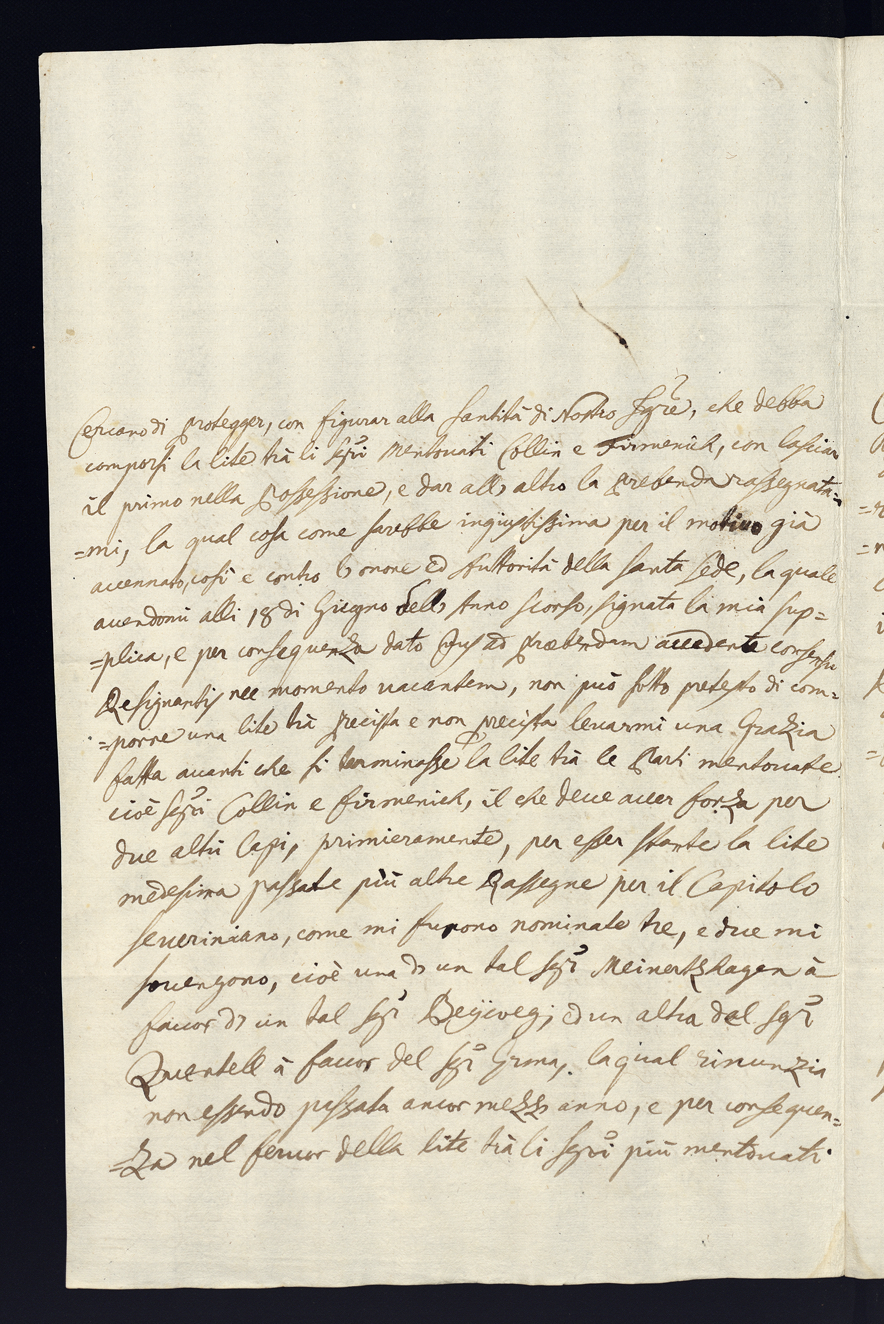 Cercano di protegger, con figurar alla Santità di Nostro Sgre, che debba
comporsi la lite trà li Sgri mentovati Collin e Firmenich, con lasciar
il primo nella Possessione, e dar all' altro la prebenda rassegnata=
=mi, la qual cosa come sarebbe ingiustissima per il motivo già
accennato, così e contro l'onore ed Auttorità della Santa Sede, la quale
avendomi alli 18 di Giugno dell' Anno scorso, signata la mia sup=
=plica, e per consequenza dato Jus ad præbendam accedente consensu
Resignantis nec momento vacantem, non può sotto pretesto di com=
=porre una lite trà precista e non precista levarmi una Grazia
fatta avanti che si terminasse la lite trà le Parti mentovate
cioè Sgri Collin e Firmenich, il che deve aver forza per
due altri Capi, primieramente, per esser stante la lite
medesima passate più altre Rassegne per il Capitolo
Severiniano, come mi furono nominate tre, e due mi
sovengono, cioè una di un tal Sgr Meinertzhagen à
favor di un tal Sgr Beywegh ed un altra dal Sgr
Quentell à favor del Sgr la qual rinunzia
non essendo passata ancor mezzo anno, e per consequen=
=za nel fervor della lite trà li Sgri più mentovati